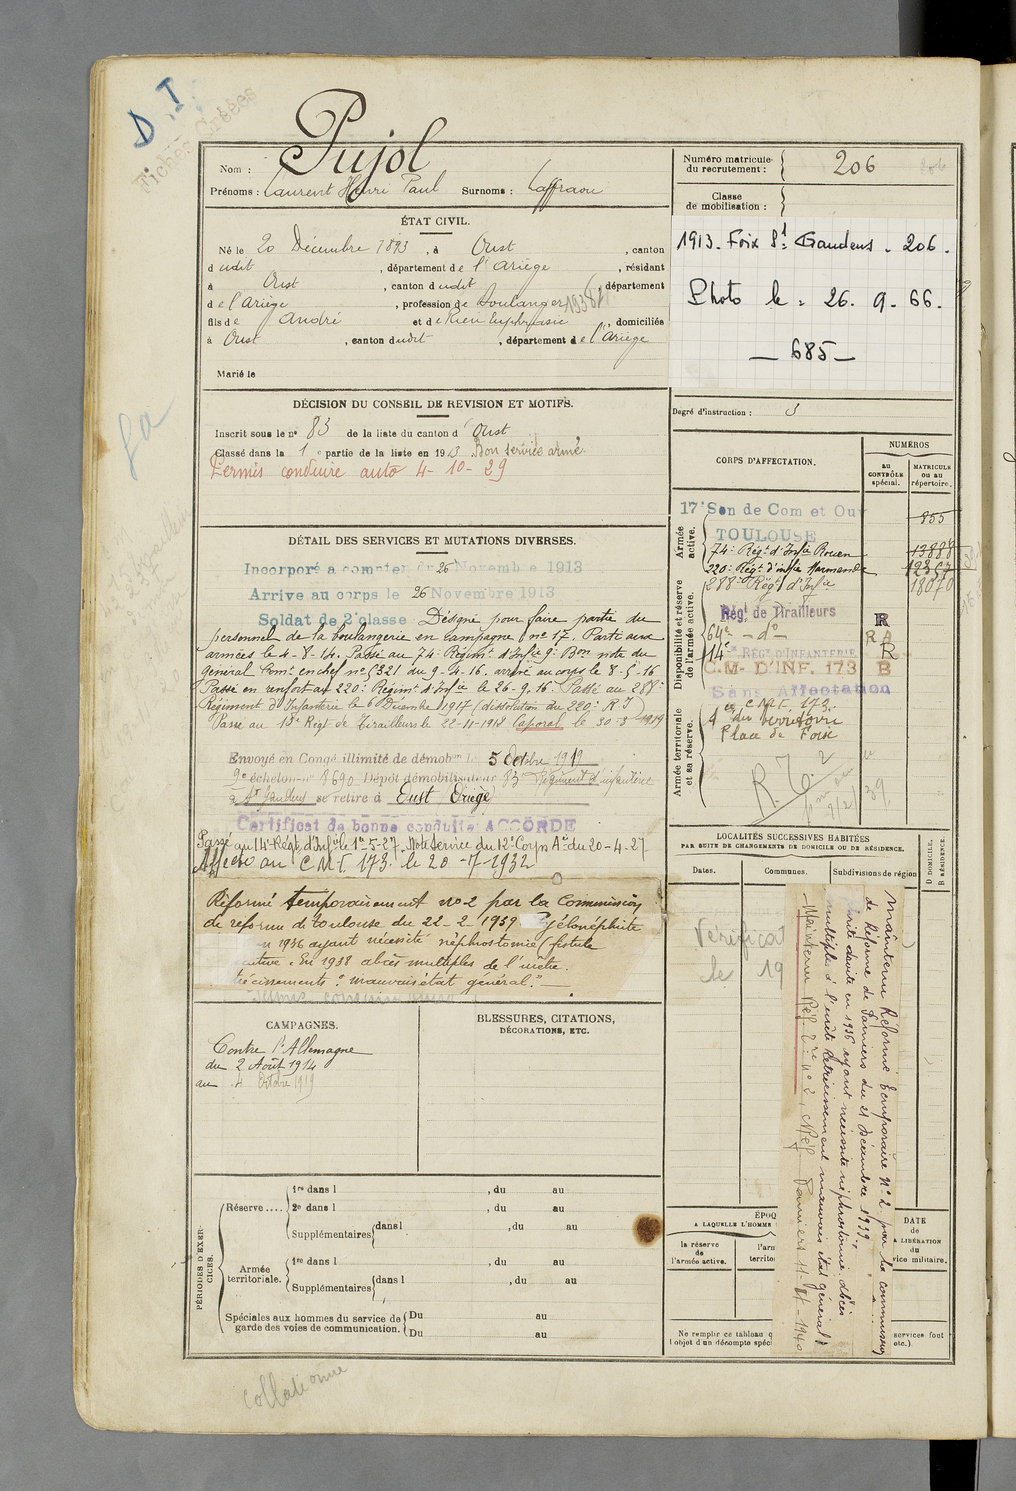 D. I.
Fiches Créées
Nom : Pujol
Prénoms : Laurent Henri Paul Surnoms : Laffraou
ÉTAT CIVIL.
Né le 20 Décembre 1893, à Oust, canton
dudit, département de l'Ariège, résidant
à Oust, canton dudit, département
de l'Ariège, profession de Boulanger
fils de André et de Rieu Euphrasie, domiciliés
à Oust, canton dudit, département de l'Ariège
Marié le
DÉCISION DU CONSEIL DE REVISION ET MOTIFS.
Inscrit sous le n° 83 de la liste du canton d'Oust
Classé dans la 1e partie de la liste en 1913 Bon service armé
Permis conduire auto 4-10-29
DÉTAIL DES SERVICES ET MUTATIONS DIVERSES.
Incorporé à compter du 26 Novembre 1913
Arrive au corps le 26 Novembre 1913
Soldat de 2e classe Désigné pour faire partie du
personnel de la boulangerie en campagne n° 17. Parti aux
armées le 4-8-14. Passé au 74e Régimt d'Infie 9e Bon note du
général Comt en chef n° 5321 du 9-4-16. arrivé au corps le 8-5-16
Passé en renfort au 220e Régimt d'Infie le 26-9-16. Passé au 288e
Régiment d'Infanterie le 6 Décembre 1917 (dissolution du 220e R I)
Passé au 13e Régt de Tirailleurs le 22-11-1918 Caporal le 30-3-1919
Envoyé en Congé illimité de démobon le 5 Octobre 1919
9e échelon n° 8690 Dépôt démobilisateur 83 Régiment d'infanterie
à St Gaudens se retire à Oust Ariège
Certificat de bonne conduite ACCORDÉ
Passé au 14e Régt d'Infie le 1er-5-27. Note service du 12e Corps Aée du 20-4-27
Affecté au C.M.I. 173. le 20-7-1932
Réformé temporairement n° 2 par la Commission
de réforme de toulouse du 22-2-1939 Pyélonéphrite
en 1936 ayant nécessité néphrostomie (fistule
En 1938 abcès multiples de l'urètre.
rétrécissements "mauvais état général".
CAMPAGNES.
Contre l'Allemagne
du 2 Août 1914
au 4 Octobre 1919
BLESSURES, CITATIONS,
DÉCORATIONS, ETC.
PÉRIODES D'EXERCICES.
Réserve....
1re dans l , du au
2e dans l , du au
Supplémentaires dans l , du au
Armée territoriale.
1re dans l , du au
Supplémentaires dans l , du au
Spéciales aux hommes du service de garde des voies de communication.
Du au
Du au
collationné
Numéro matricule du recrutement : 206
Classe de mobilisation :
1913. Foix St Gaudens. 206.
Photo le : 26. 9. 66.
— 685 —
Degré d'instruction : 3
CORPS D'AFFECTATION.
NUMÉROS
au CONTRÔLE spécial.
MATRICULE ou au répertoire.
Armée active.
17e Son de Com et Ouv 855
TOULOUSE
74e Régt d'Infie Rouen 13888
220e Régt d'infie Marmande 12367
288e Régt d'Infie 18070
Disponibilité et réserve de l'armée active.
Régt de Tirailleurs R
64e — do — R A
14e RÉGt D'INFANTERIE R
C.M. D'INF. 173 B
Sans Affectation
Armée territoriale et sa réserve.
Place de Foix
R. T. 2
LOCALITÉS SUCCESSIVES HABITÉES
PAR SUITE DE CHANGEMENTS DE DOMICILE OU DE RÉSIDENCE.
Dates.
Communes.
Subdivisions de région
D DOMICILE.
R RÉSIDENCE.
Vérificat
le 19
Maintenu Réformé temporaire N° 2 par la commission
de Réforme de Pamiers du 21 Décembre 1939,
en 1936 ayant nécessité néphrostomie abcès
multiples à l'urètre rétrécissement mauvais état général)
Maintenu Réf. n° 2, Pamiers 1940
ÉPOQ
A LAQUELLE L'HOMME
la réserve de l'armée active.
l'arm
territor
DATE
de
LIBÉRATION
du
vice militaire.
Ne remplir ce tableau q
l'objet d'un décompte spéc
services font
etc.)